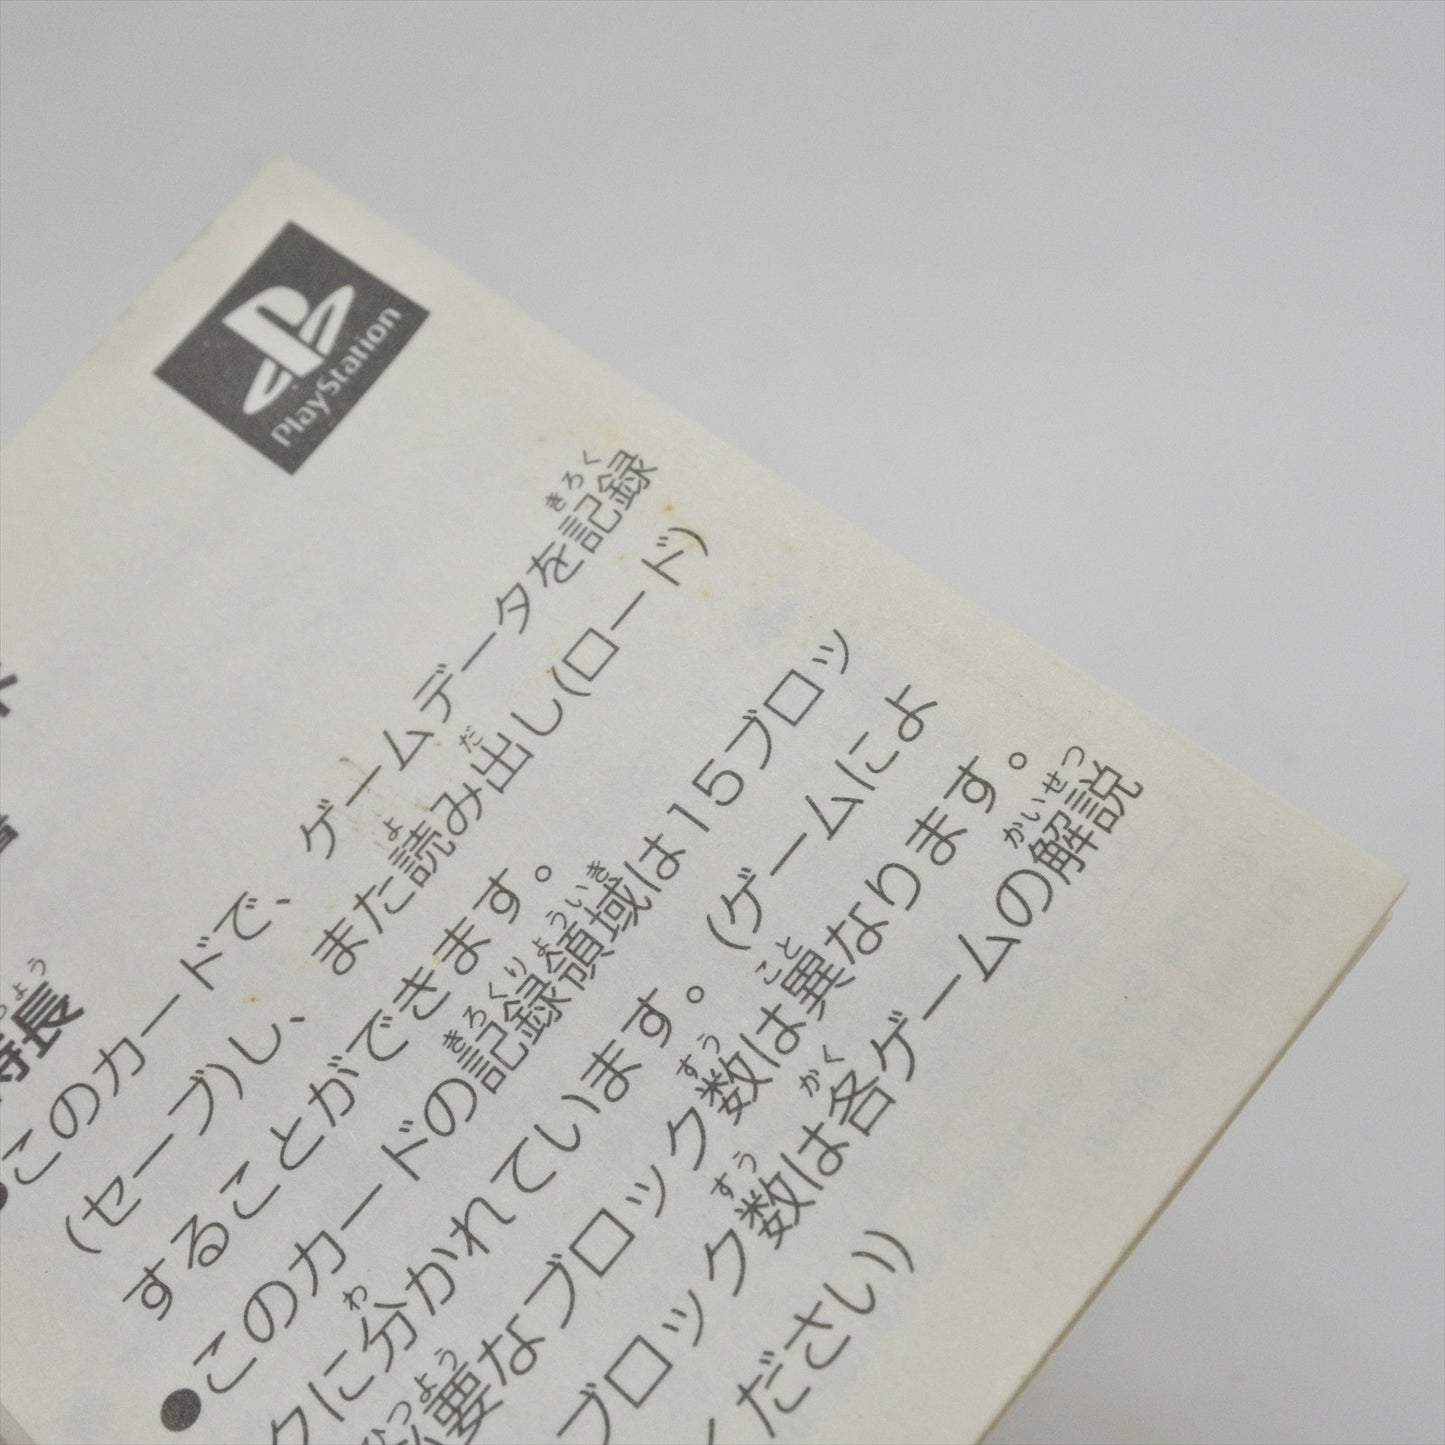 PlayStation
特長
●このカードで、ゲームデータを記録
(セーブ)し、また読み出し(ロード)
することができます。
●このカードの記録領域は15ブロッ
クに分かれています。(ゲームによ
必要なブロック数は異なります。
ブロック数は各ゲームの解説
ください)